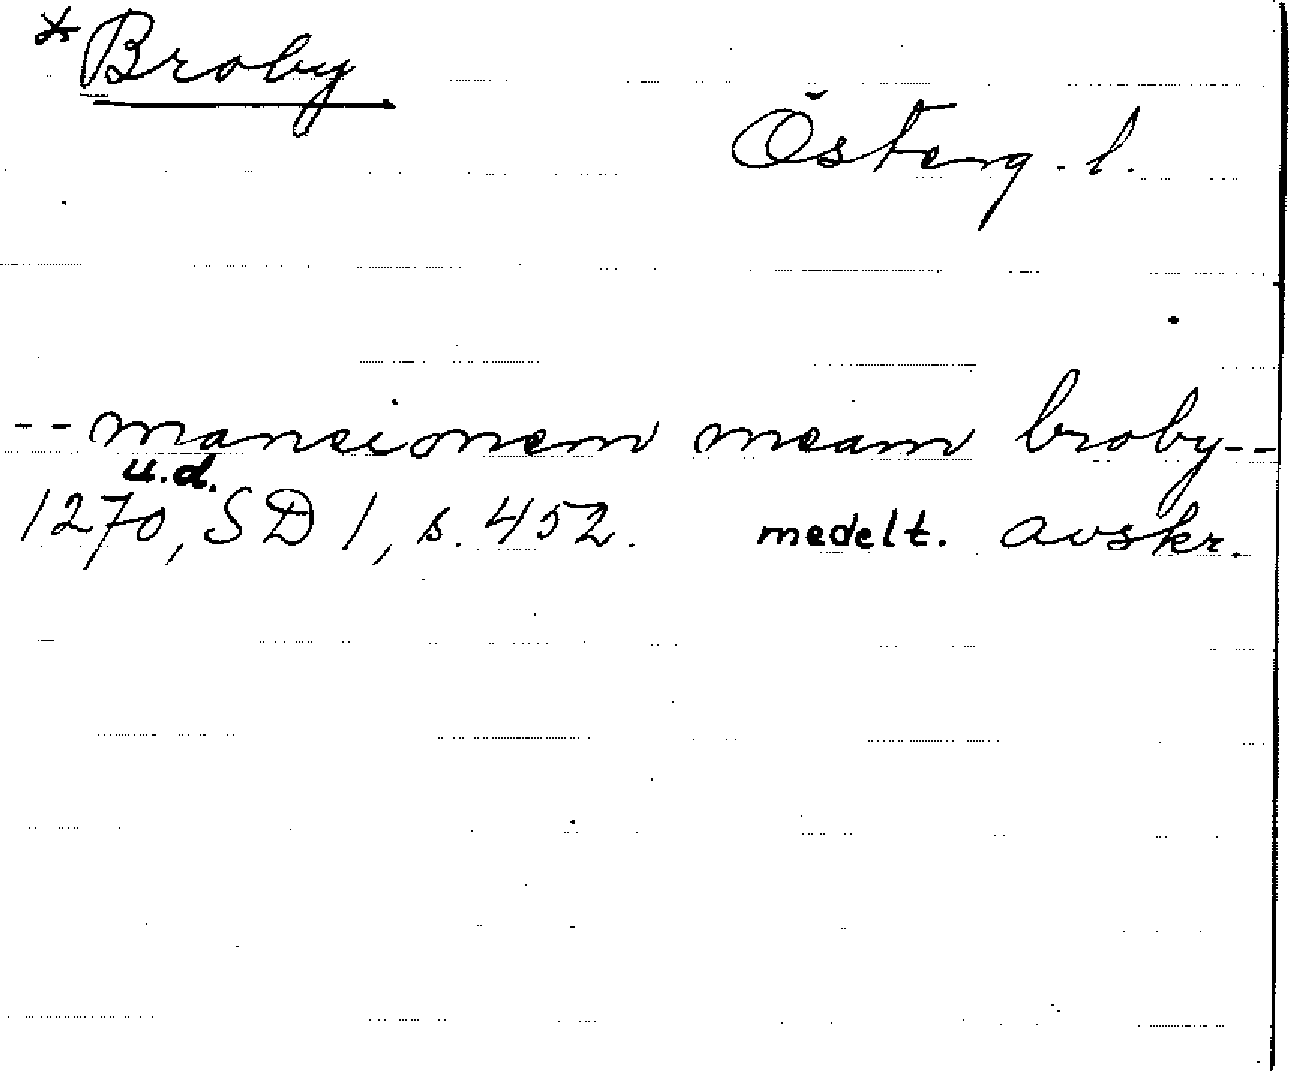 *Broby
Österg. l.
-- mansionem meam broby--
u.d.
1270, SD 1, s. 452. medelt. avskr.